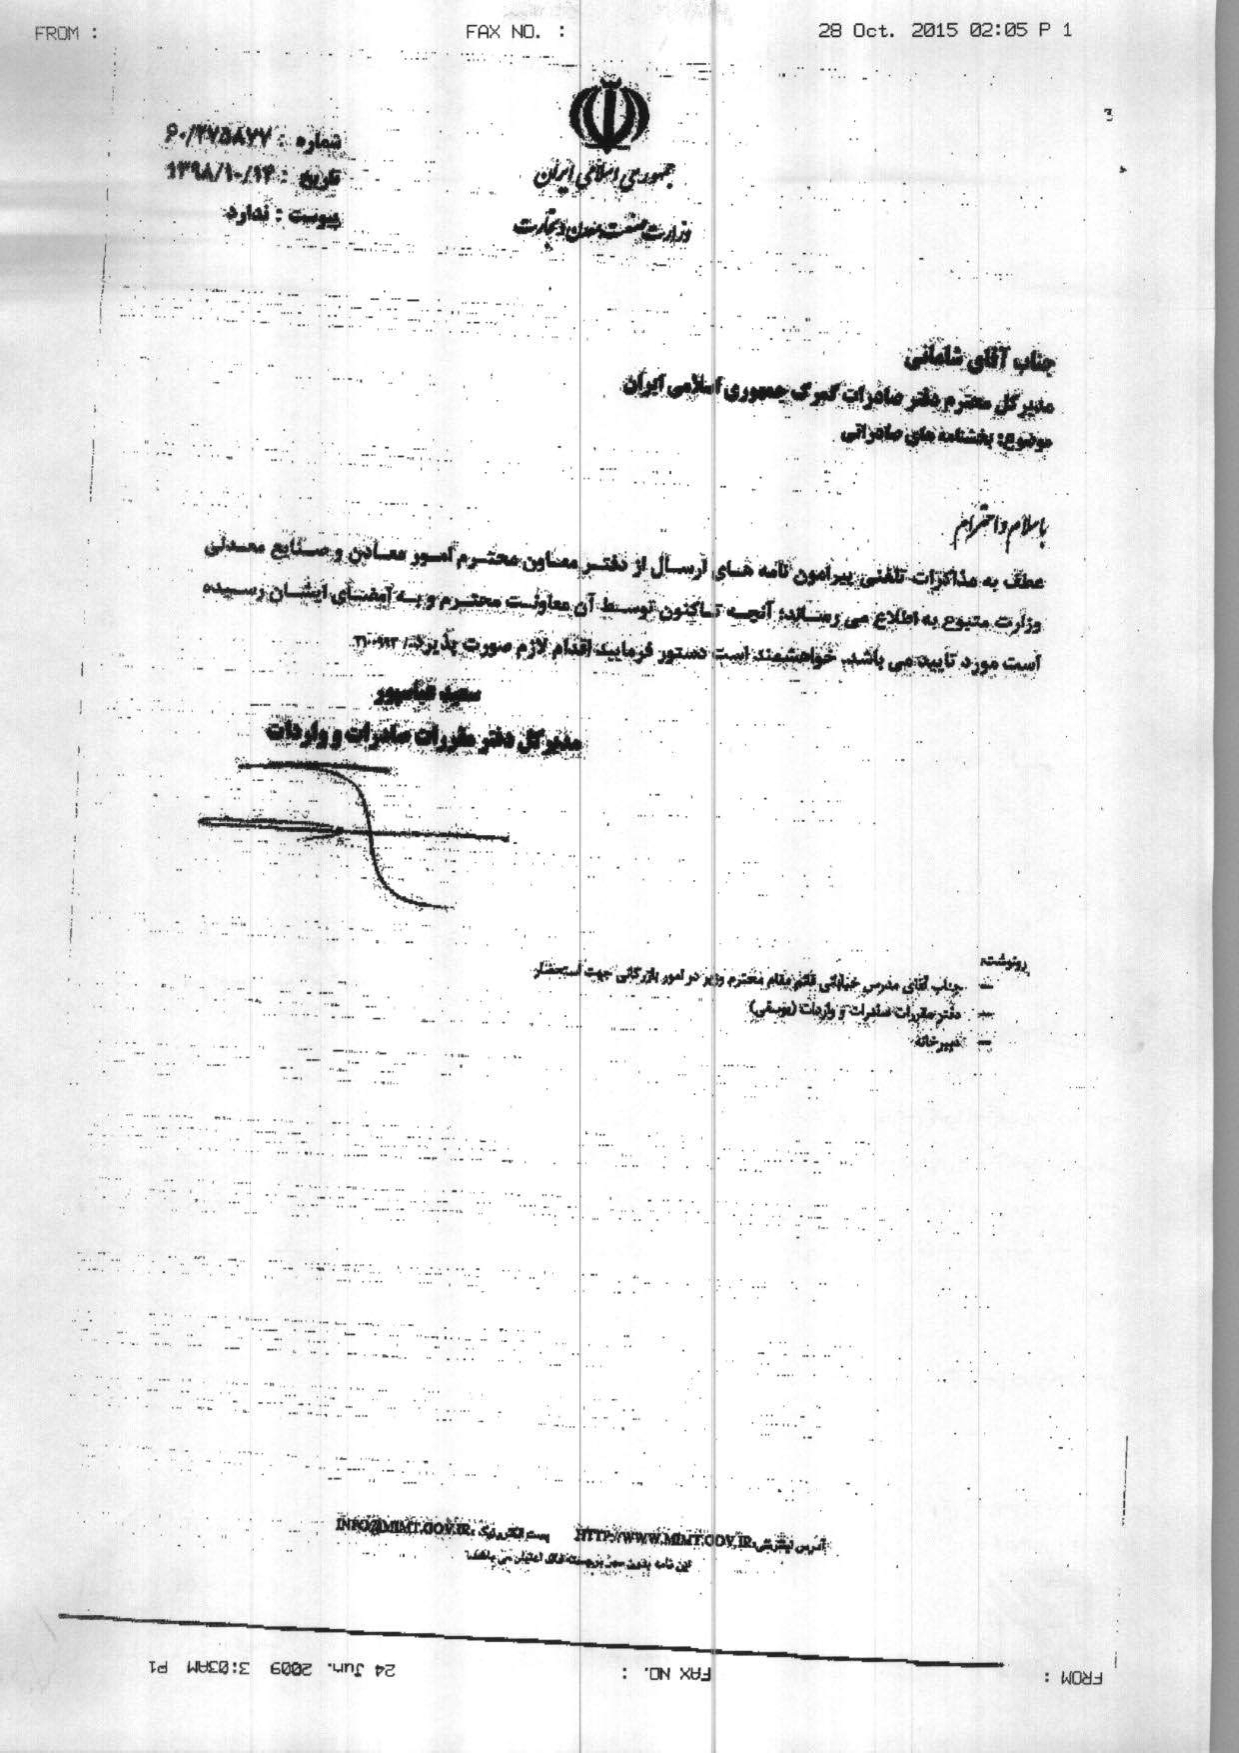 FROM :
FAX NO. :
28 Oct. 2015 02:05 P 1
جمهوری اسلامی ایران
وزارت صنعت معدن و تجارت
شماره : ۶۰/۲۷۵۸۷۷
تاریخ : ۱۳۹۸/۱۰/۱۴
پیوست : ندارد
جناب آقای
مدیرکل محترم دفتر صادرات گمرک جمهوری اسلامی ایران
موضوع: بخشنامه های صادراتی
باسلام و احترام
عطف به مذاکرات تلفنی پیرامون نامه های ارسال از دفتر معاون محترم امور معادن و صنایع معدنی
وزارت متبوع به اطلاع می رساند؛ آنچه تاکنون توسط آن معاونت محترم و به امضای ایشان رسیده
است مورد تایید می باشد. خواهشمند است دستور فرمایید اقدام لازم صورت پذیرد.
سعید عباسپور
مدیرکل دفتر مقررات صادرات و واردات
رونوشت:
– جناب آقای مدرس خیابانی قائم مقام محترم وزیر در امور بازرگانی جهت استحضار
– دفتر مقررات صادرات و واردات (یوسفی)
– دبیرخانه
آدرس اینترنتی: HTTP://WWW.MIMT.GOV.IR پست الکترونیک: INFO@MIMT.GOV.IR
این نامه بدون مهر برجسته فاقد اعتبار می باشد
FROM :
FAX NO. :
24 Jun. 2009 3:03AM P1